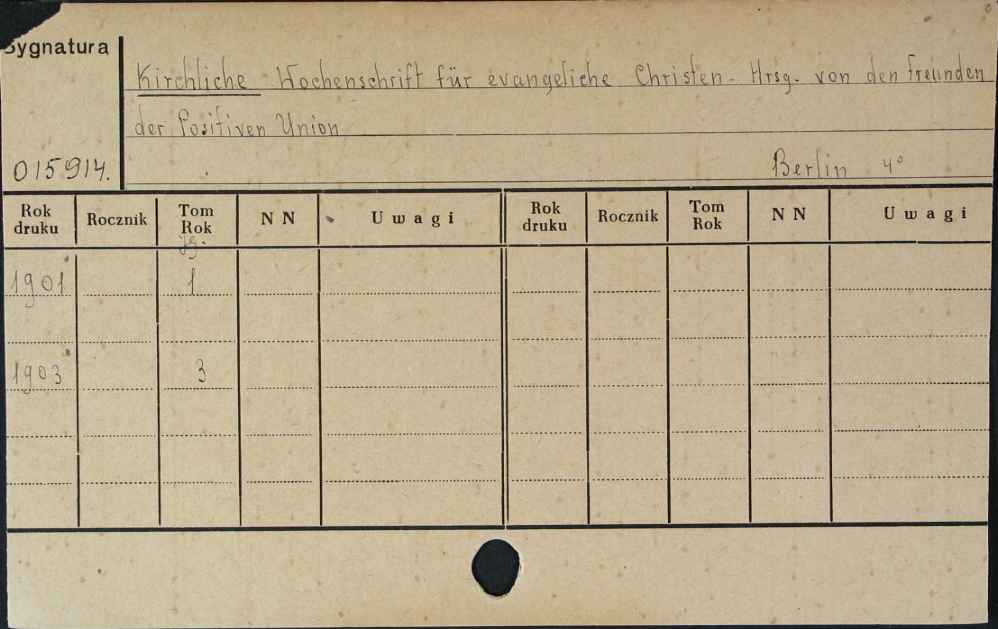 Sygnatura
Kirchliche Wochenschrift für evangeliche Christen. Hrsg. von den Freunden
der Positiven Union
015914.
Berlin 4°
Rok druku Rocznik Tom Rok N N Uwagi Rok druku Rocznik Tom Rok N N Uwagi
Jg.
1901 1
1903 3